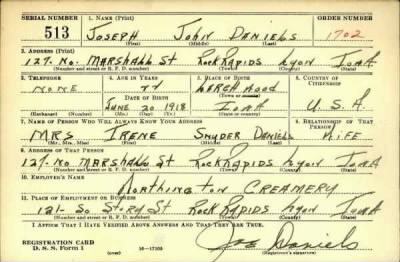 SERIAL NUMBER 1. NAME (Print) ORDER NUMBER
513 JOSEPH JOHN DANIELS 1702
(First) (Middle) (Last)
2. ADDRESS (Print)
127. NO. MARSHALL ST ROCK RAPIDS LYON IOWA
(Number and street or R. F. D. number) (Town) (County) (State)
3. TELEPHONE 4. AGE IN YEARS 5. PLACE OF BIRTH 6. COUNTRY OF CITIZENSHIP
NONE 22 LARCHWOOD
DATE OF BIRTH (Town or county)
JUNE 20 1918 IOWA U.S.A.
(Exchange) (Number) (Mo.) (Day) (Yr.) (State or country)
7. NAME OF PERSON WHO WILL ALWAYS KNOW YOUR ADDRESS 8. RELATIONSHIP OF THAT PERSON
MRS IRENE SNYDER DANIELS WIFE
(Mr., Mrs., Miss) (First) (Middle) (Last)
9. ADDRESS OF THAT PERSON
127. NO MARSHALL ST ROCK RAPIDS LYON IOWA
(Number and street or R. F. D. number) (Town) (County) (State)
10. EMPLOYER'S NAME
WORTHINGTON CREAMERY
11. PLACE OF EMPLOYMENT OR BUSINESS
121- SO STORY ST ROCK RAPIDS LYON IOWA
(Number and street or R. F. D. number) (Town) (County) (State)
I AFFIRM THAT I HAVE VERIFIED ABOVE ANSWERS AND THAT THEY ARE TRUE.
REGISTRATION CARD
D. S. S. Form 1 16-17105 Joe Daniels
(Registrant's signature)